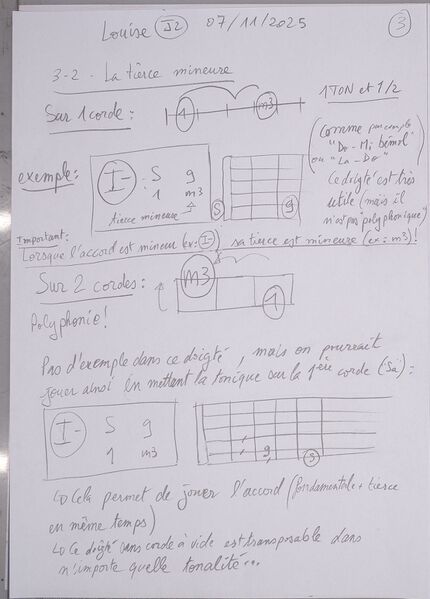 Louise J2 07/11/2025 3
3-2 - La tierce mineure
Sur 1 corde : 1 m3
1 TON et 1/2
(comme par exemple
"Do - Mi bémol"
ou "La - Do")
exemple: I- : S g
1 m3
tierce mineure
S g
Ce doigté est très
utile (mais il
n'est pas "polyphonique")
Important:
Lorsque l'accord est mineur (ex: I-) sa tierce est mineure (ex: m3) !
Sur 2 cordes : m3
1
Polyphonie!
Pas d'exemple dans ce doigté, mais on pourrait
jouer ainsi en mettant la tonique sur la 1ère corde (Sa) :
I- S g
1 m3
g S
↳ Cela permet de jouer l'accord (fondamentale + tierce
en même temps)
↳ Ce doigté sans corde à vide est transposable dans
n'importe quelle tonalité...